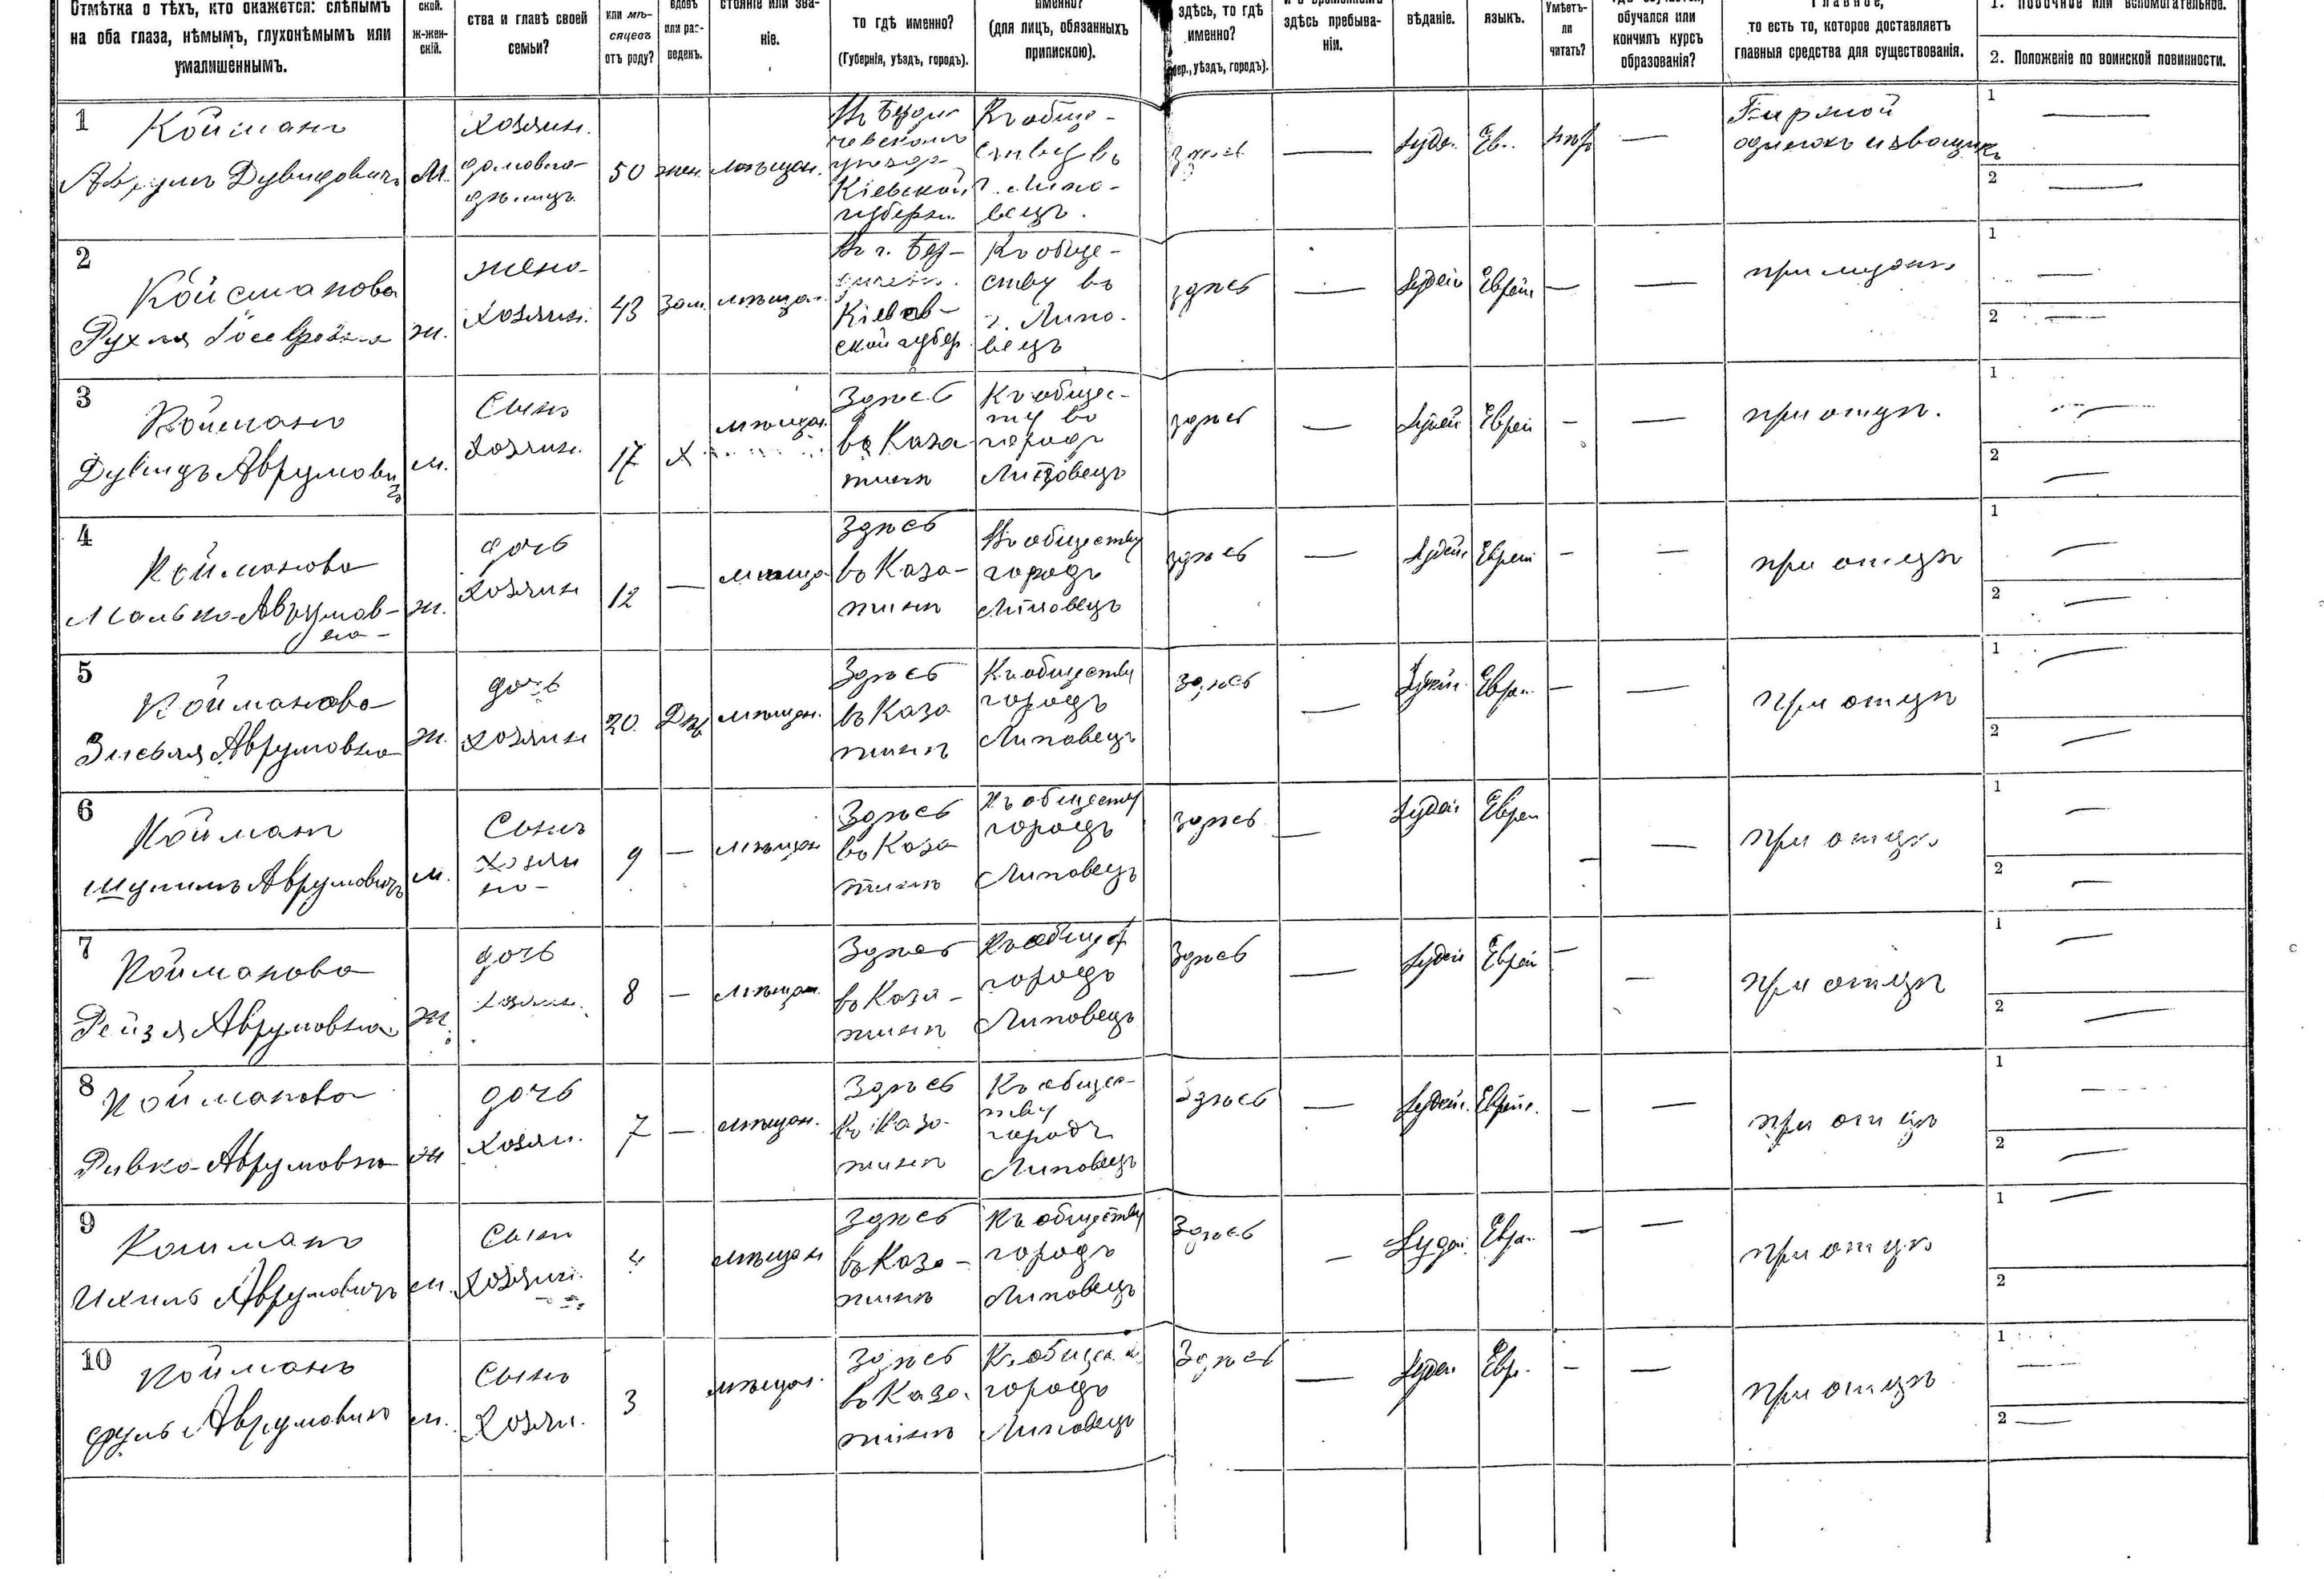 Отмѣтка о тѣхъ, кто окажется: слѣпымъ
на оба глаза, нѣмымъ, глухонѣмымъ или
умалишеннымъ.
ской.
ж-жен-
скій.
ства и главѣ своей
семьи?
или мѣ-
сяцевъ
отъ роду?
вдовъ
или раз-
веденъ.
стояніе или зва-
ніе.
то гдѣ именно?
(Губернія, уѣздъ, городъ).
именно?
(для лицъ, обязанныхъ
припискою).
здѣсь, то гдѣ
именно?
уѣздъ, городъ).
здѣсь пребыва-
ніи.
вѣданіе.
языкъ.
Умѣетъ-
ли
читать?
обучался или
кончилъ курсъ
образованія?
Главное,
то есть то, которое доставляетъ
главныя средства для существованія.
1. Побочное или вспомогательное.
2. Положеніе по воинской повинности.
1
Койманъ
Аврумъ Дувидовичъ
м.
хозяин.
50
жен.
мѣщан.
Кіевской
губерн.
Къ обще-
г. Липо-
вецъ.
здѣсь
—
Іуд.
Ев.
—
Биржой
1 —
2 —
2
Койманова
Рухля
ж.
жена
хозяин.
43
зам.
мѣщан.
Въ г. Бер-
Кіев
ской губер.
Къ обще-
ству въ
г. Липо-
вецъ
здѣсь
—
Іудей
Еврей
—
—
при мужѣ
1 —
2 —
3
Койманъ
Дувидъ Аврумович
м.
Сынъ
хозяин.
17
Х
мѣщан.
Здѣсь
въ Каза
тинѣ
Къ общес-
тву въ
городъ
Липовецъ
здѣсь
—
Іудей
Еврей
—
—
при отцѣ.
1 —
2 —
4
Койманова
Малька Аврумов-
на
ж.
дочь
хозяин
12
—
мѣща
Здѣсь
въ Каза-
тинѣ
Къ обществу
городъ
Липовецъ
здѣсь
—
Іудей
Еврей
—
—
при отцѣ
1 —
2 —
5
Койманова
Аврумовна
ж.
дочь
хозяин
20
мѣщан.
Здѣсь
въ Каза
тинѣ
Къ обществу
городъ
Липовецъ
здѣсь
—
Іудей
Евр.
—
—
при отцѣ
1 —
2 —
6
Койманъ
Аврумовичъ
м.
Сынъ
хозяи
на
9
—
мѣщан
Здѣсь
въ Каза
тинѣ
Къ обществу
городъ
Липовецъ
здѣсь
—
Іудей
Еврей
—
—
при отцѣ
1 —
2 —
7
Койманова
Рейзя Аврумовна
ж.
дочь
хозяин.
8
—
мѣщан.
Здѣсь
въ Каза-
тинѣ
Къ общест
городъ
Липовецъ
Здѣсь
—
Іудей
Еврей
—
—
при отцѣ
1 —
2 —
8
Койманова
Ривка Аврумовна
ж
дочь
хозяи.
7
—
мѣщан.
Здѣсь
въ Каза-
тинѣ
Къ общес-
тву
городъ
Липовецъ
Здѣсь
—
Іудей.
Еврей.
—
—
при отцѣ
1 —
2 —
9
Койманъ
Ихиль Аврумовичъ
м.
Сынъ
хозяин.
4
мѣщан
Здѣсь
въ Каза-
тинѣ
Къ обществу
городъ
Липовецъ
Здѣсь
—
Іудей.
Евр.
—
—
при отцѣ
1 —
2
10
Койманъ
Аврумович
м.
Сынъ
хозяи.
3
мѣщан.
Здѣсь
въ Каза.
тинѣ
городъ
Липовецъ
Здѣсь
—
Іудей
Евр.
—
—
при отцѣ
1 —
2 —